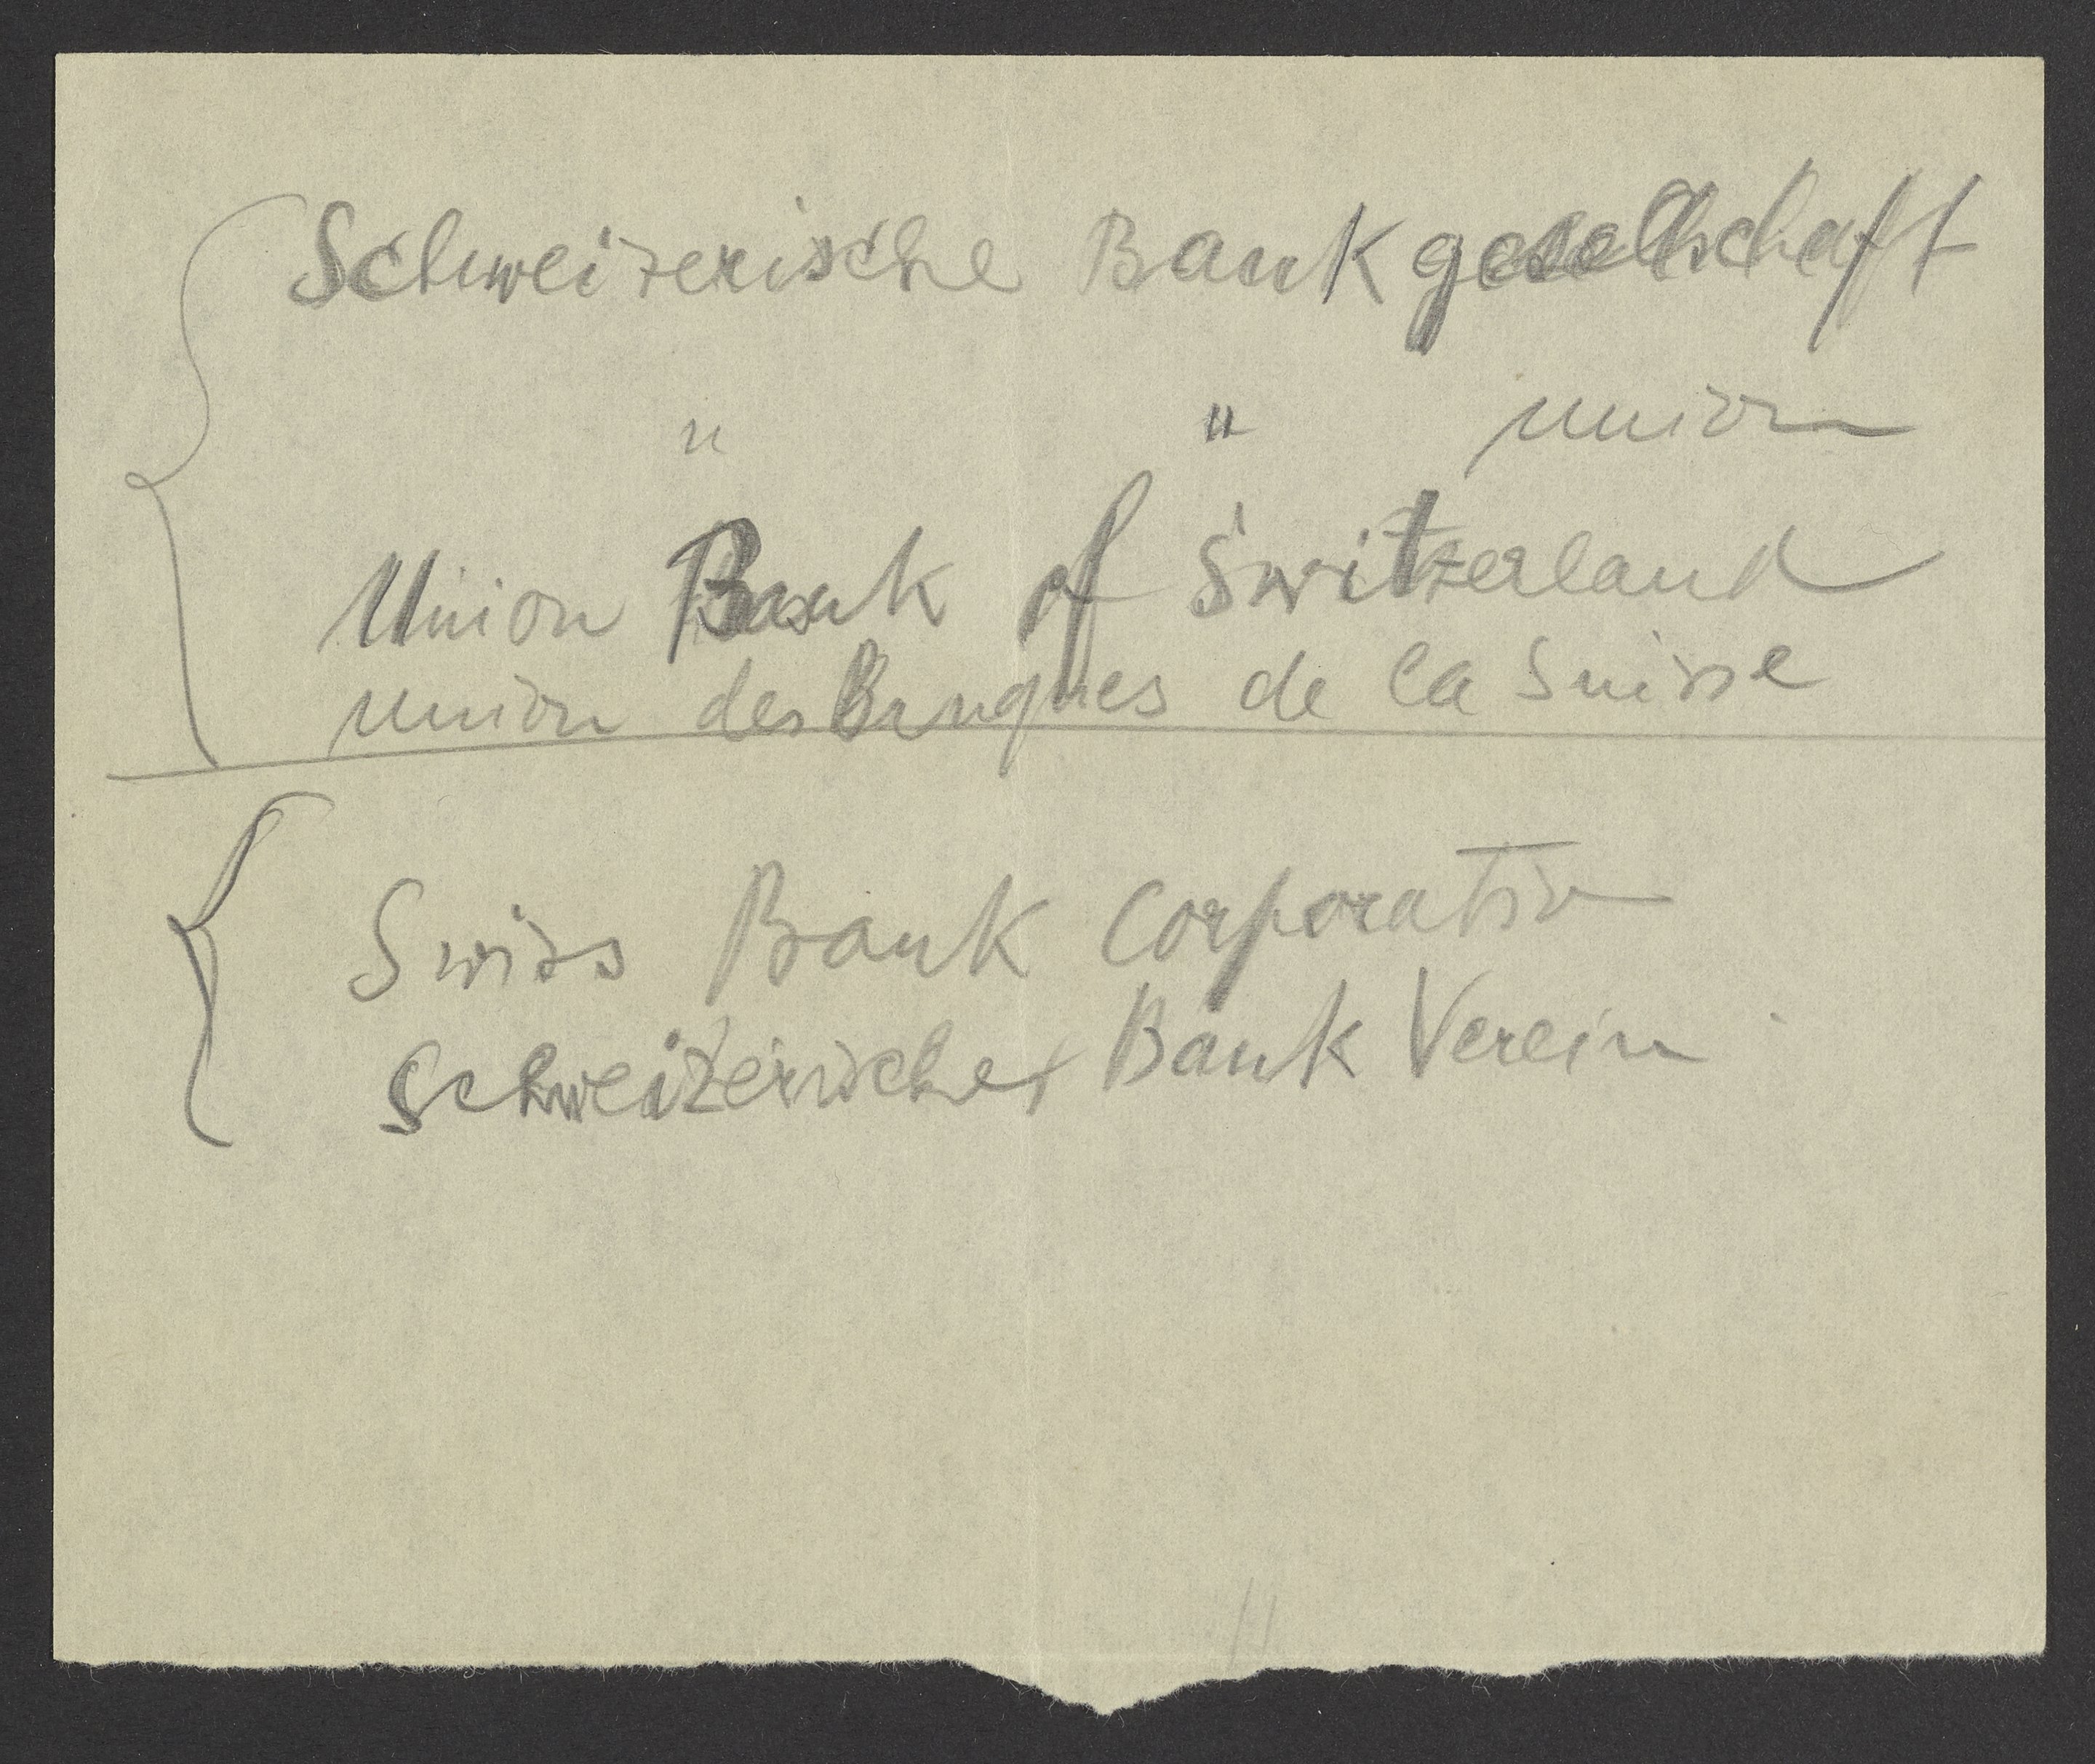 Schweizerische Bankgesellschaft
" " Union
Union Bank of Switzerland
Union des Banques de la Suisse
Swiss Bank Corporation
Schweizerischer Bank Verein